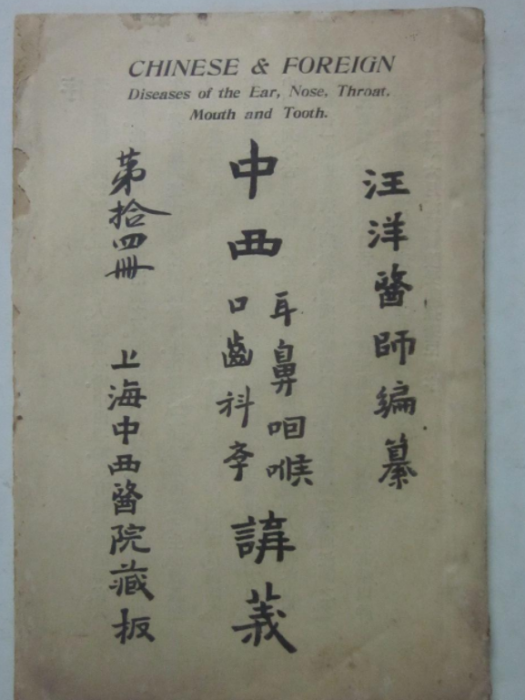 CHINESE & FOREIGN
Diseases of the Ear, Nose, Throat,
Mouth and Tooth.
汪洋醫師編纂
中西
耳鼻咽喉
口齒科斈
講義
第拾四冊
上海中西醫院藏板